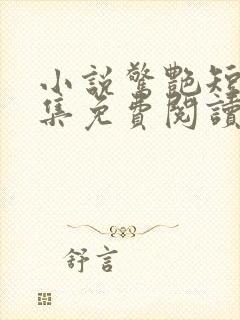 小說驚艷短
集免費閱讀
舒言